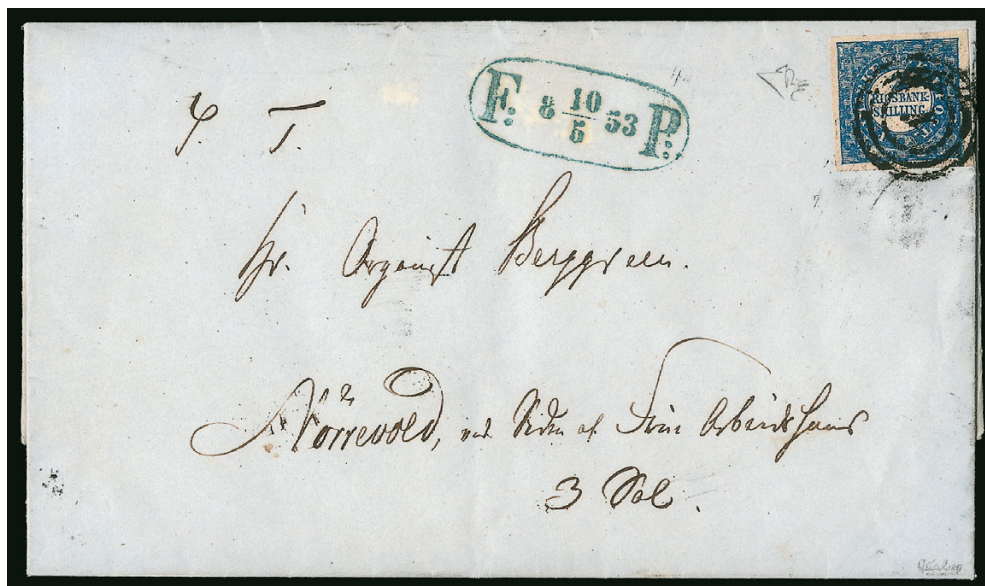 S. T.
F: 8 10/5 53 P:
RIGSBANK-
SKILLING
Hr. Organist Berggreen.
Nörrevold, ved Siden af Frue Arbeidshuus
3 Sal.